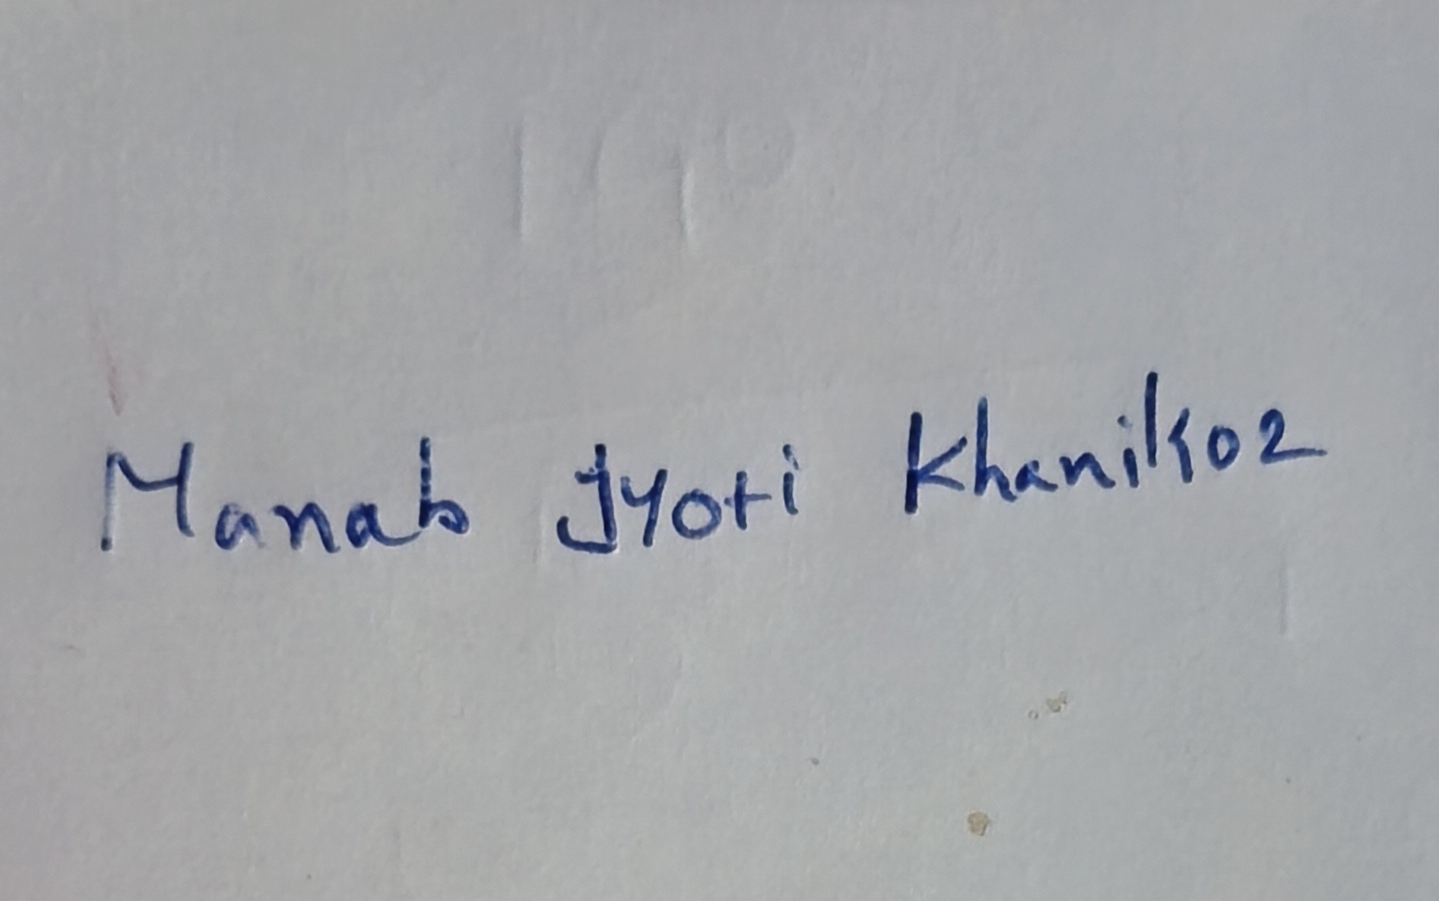 Manab Jyoti Khanikor